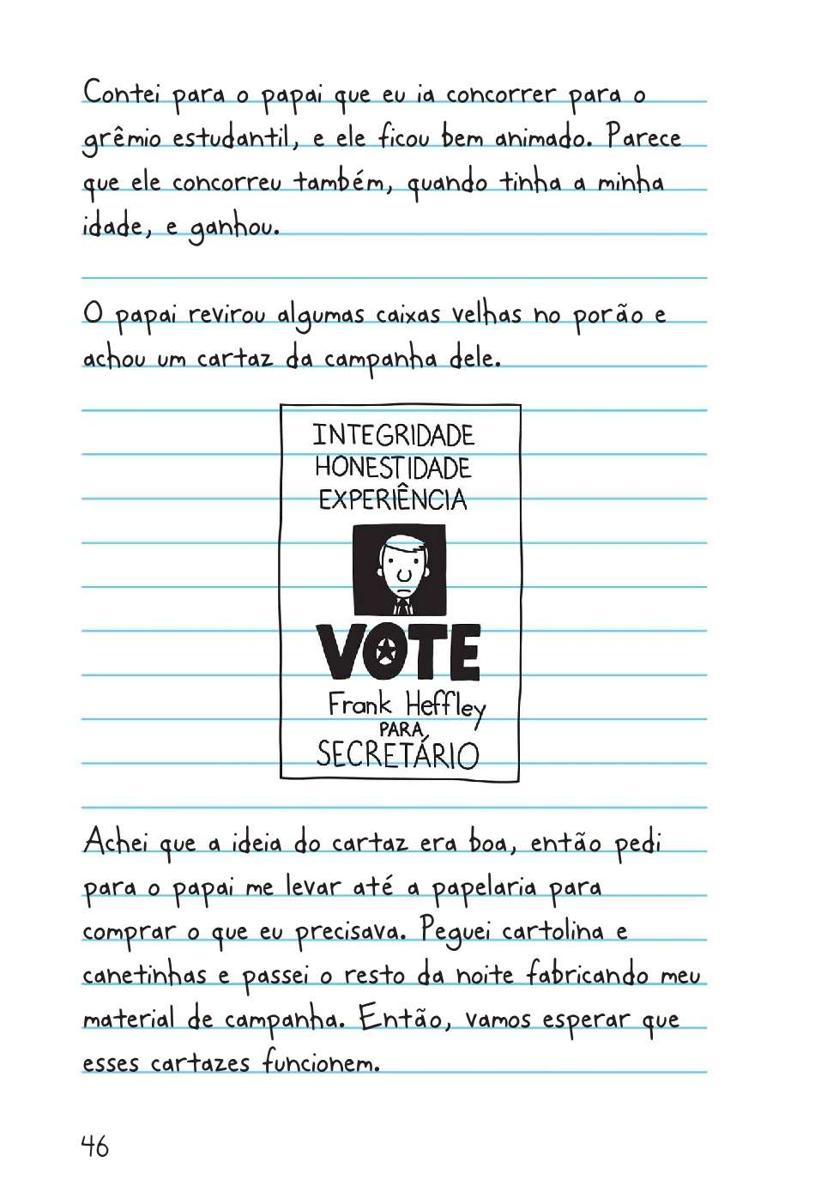 Contei para o papai que eu ia concorrer para o
grêmio estudantil, e ele ficou bem animado. Parece
que ele concorreu também, quando tinha a minha
idade, e ganhou.
O papai revirou algumas caixas velhas no porão e
achou um cartaz da campanha dele.
INTEGRIDADE
HONESTIDADE
EXPERIÊNCIA
VOTE
Frank Heffley
PARA
SECRETÁRIO
Achei que a ideia do cartaz era boa, então pedi
para o papai me levar até a papelaria para
comprar o que eu precisava. Peguei cartolina e
canetinhas e passei o resto da noite fabricando meu
material de campanha. Então, vamos esperar que
esses cartazes funcionem.
46